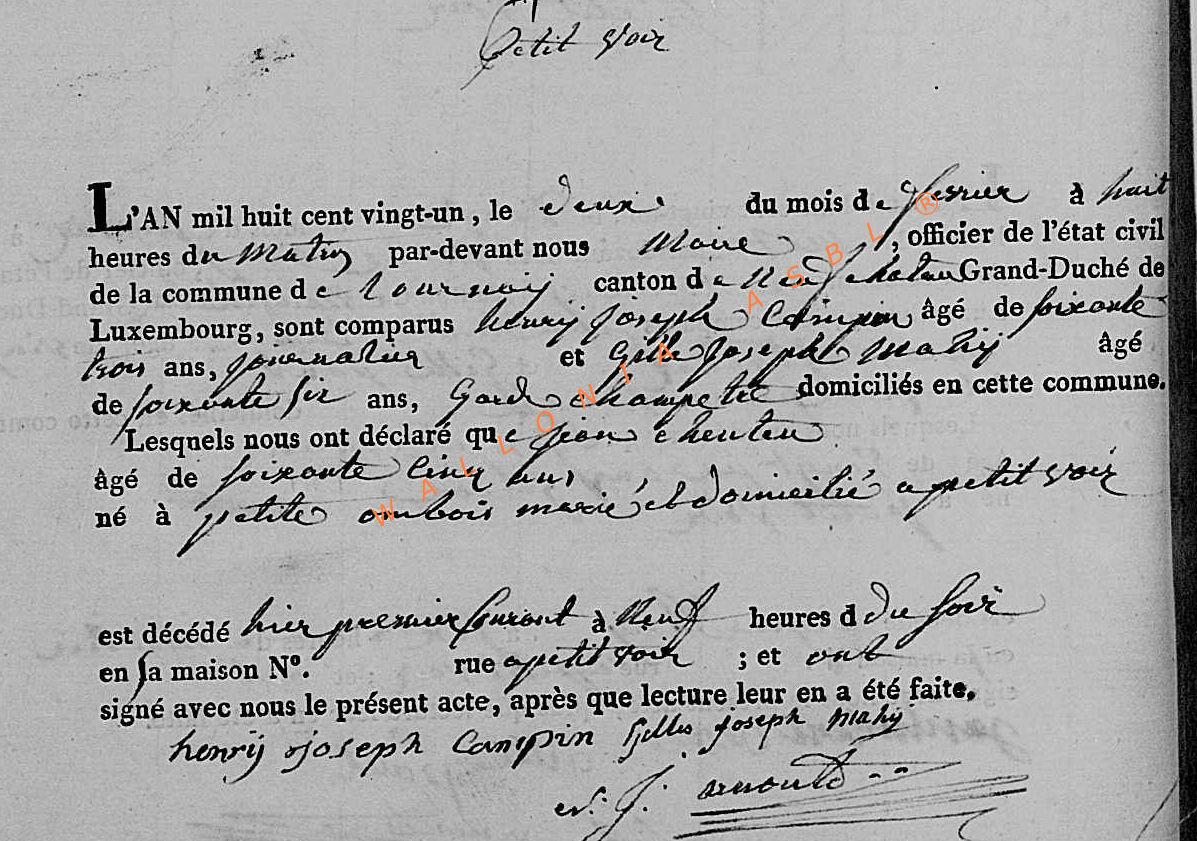 Petit Voir
L'AN mil huit cent vingt-un, le deux du mois de fevrier à huit
heures du Matin par-devant nous Maire, officier de l'état civil
de la commune de tournay canton de Neufchateau Grand-Duché de
Luxembourg, sont comparus henry joseph Campin âgé de soixante
trois ans, journalier et Gille joseph Mahy âgé
de soixante six ans, Gard champetre domiciliés en cette commune.
Lesquels nous ont déclaré que jean
âgé de soixante cinq ans
né à petite marié et domicilié a petit voir
est décédé hier premier Courant à Neuf heures d du soir
en sa maison N°. rue a petit voir ; et ont
signé avec nous le présent acte, après que lecture leur en a été faite.
henry joseph Campin Gilles joseph Mahy
J. arnould
WALLONIA ASBL ®